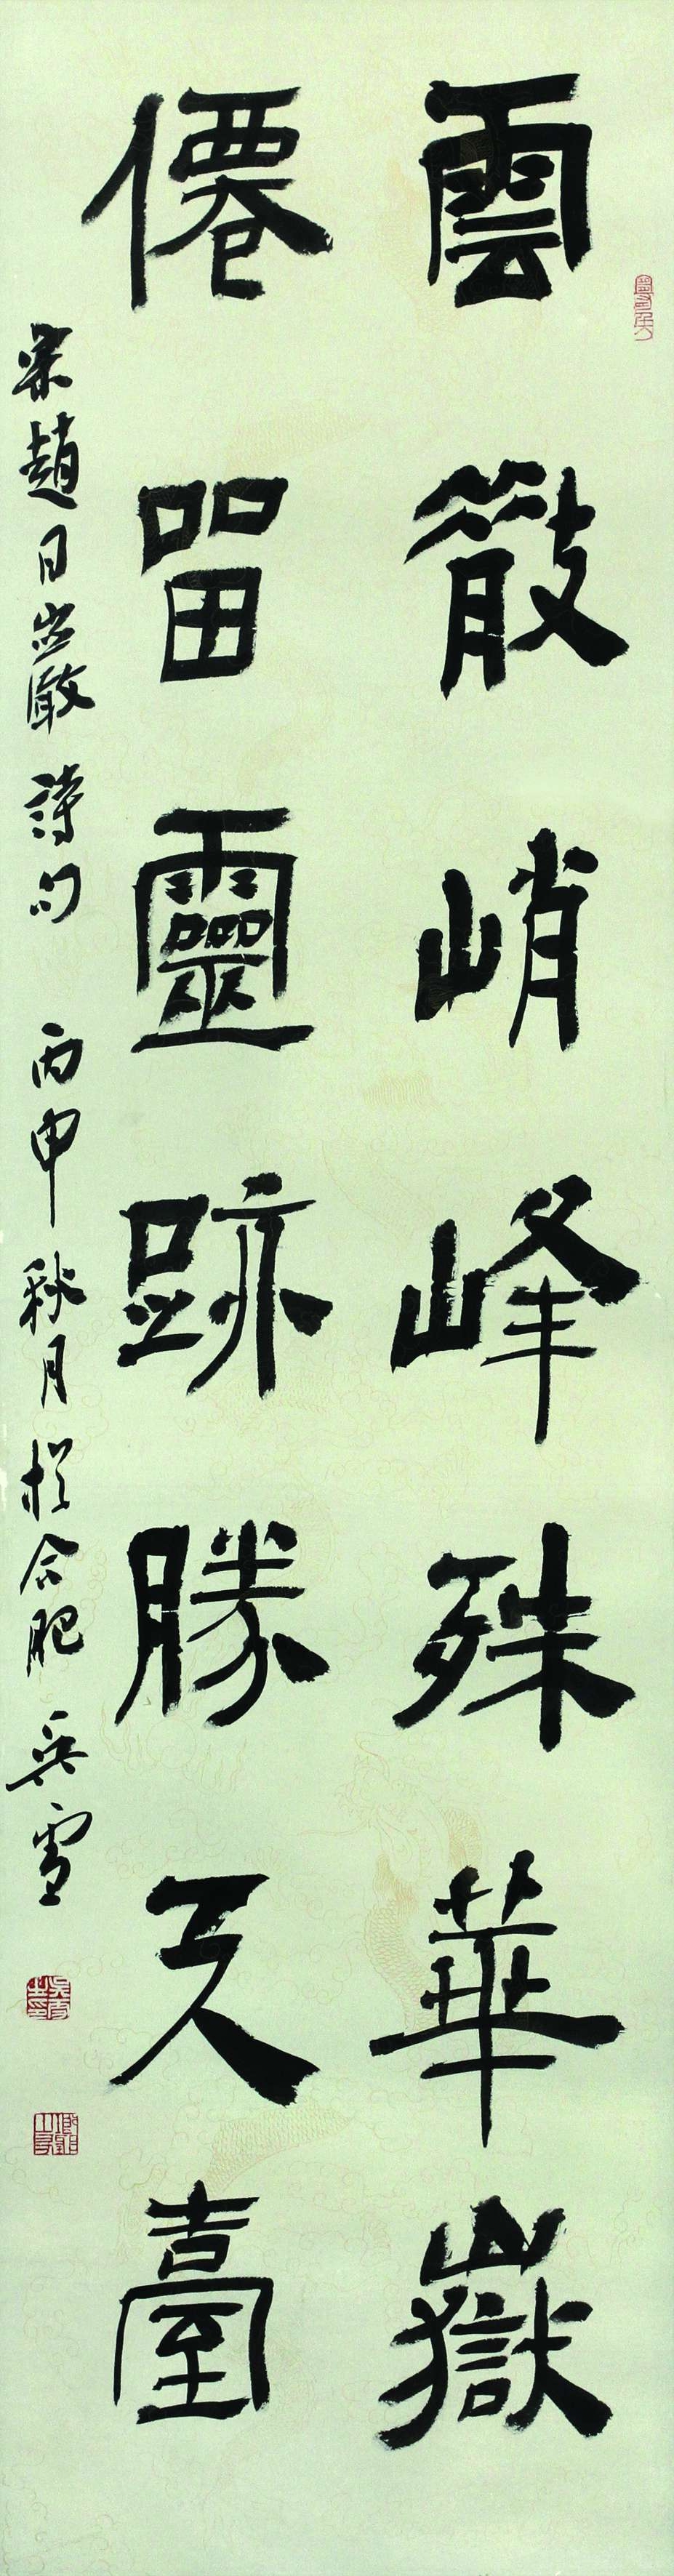 雲散峭峰殊華嶽
僊留靈跡勝天臺
宋趙日巖詩句 丙申秋月於合肥 吳雪